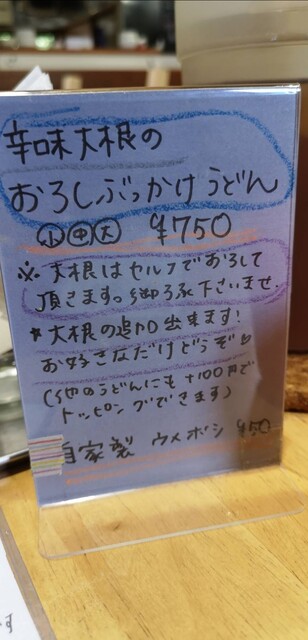 辛味大根の
おろしぶっかけうどん
小 中 大 ¥750
※ 大根はセルフでおろして
頂きます。御了承下さいませ.
* 大根の追加出来ます!
お好きなだけどうぞ♡
(他のうどんにも +100円で
トッピングできます)
自家製 ウメボシ ¥50